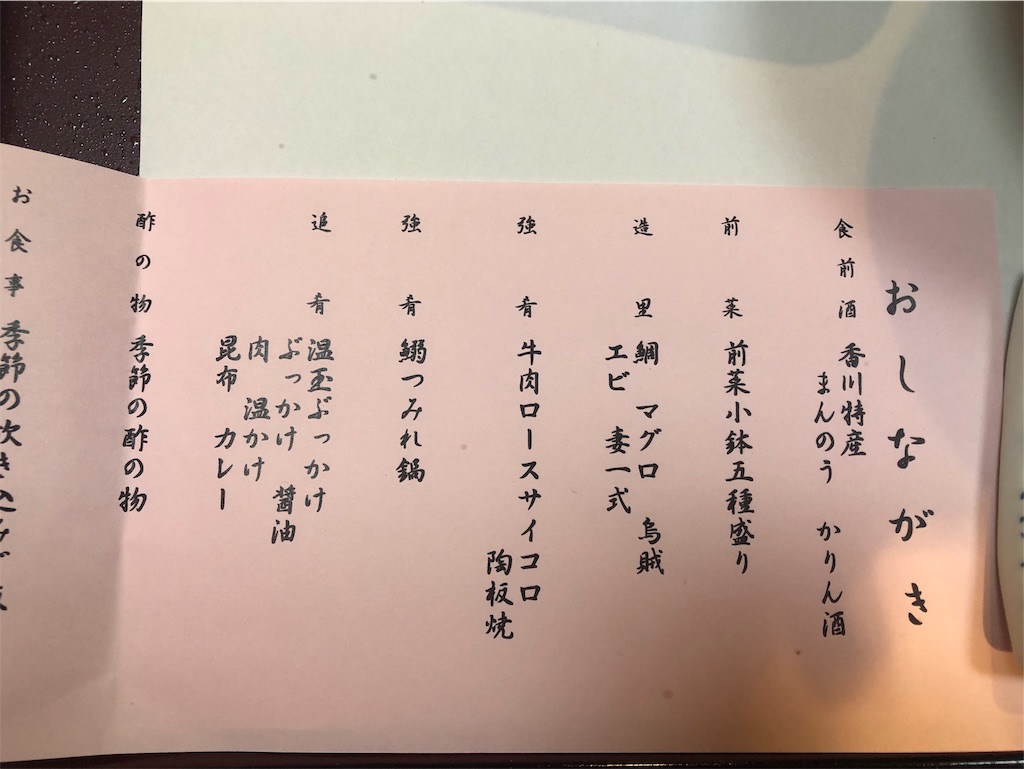 おしながき
食前酒 香川特産
まんのう かりん酒
前菜 前菜小鉢五種盛り
造里 鯛 マグロ 烏賊
エビ 妻一式
強肴 牛肉ロースサイコロ
陶板焼
強肴 鰯つみれ鍋
追肴 温玉ぶっかけ
ぶっかけ 醤油
肉 温かけ
昆布 カレー
酢の物 季節の酢の物
お食事 季節の炊き込み